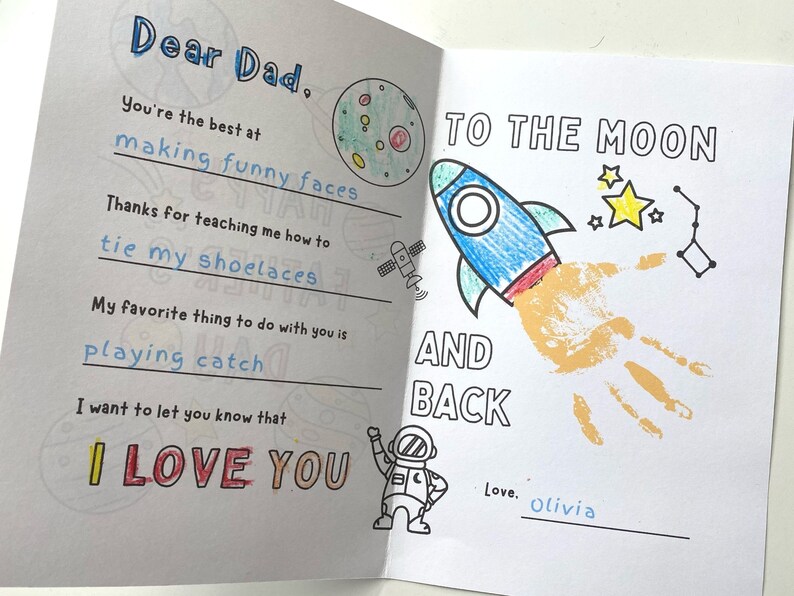 Dear Dad,
You're the best at
making funny faces
Thanks for teaching me how to
tie my shoelaces
My favorite thing to do with you is
playing catch
I want to let you know that
I LOVE YOU
TO THE MOON
AND
BACK
Love,
Olivia
HAPPY
FATHER'S
DAY